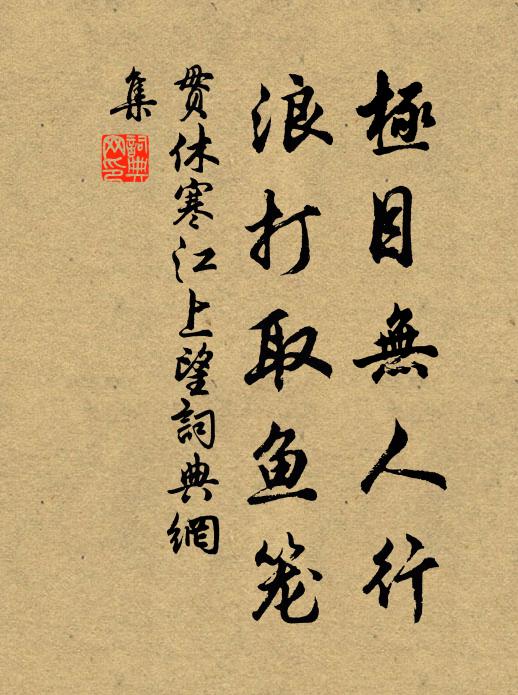 極目無人行
浪打取鱼笼
贯休寒江上望詞典網
集
詞典网印